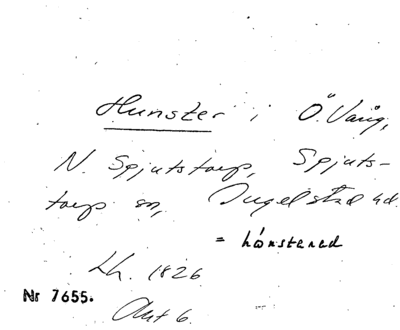 Hunster i Ö. Vång,
N. Spjutstorp, Spjuts-
torp sn, Ingelstad hd.
= hönstered
Lh. 1826
Nr 7655.
Akt 6.